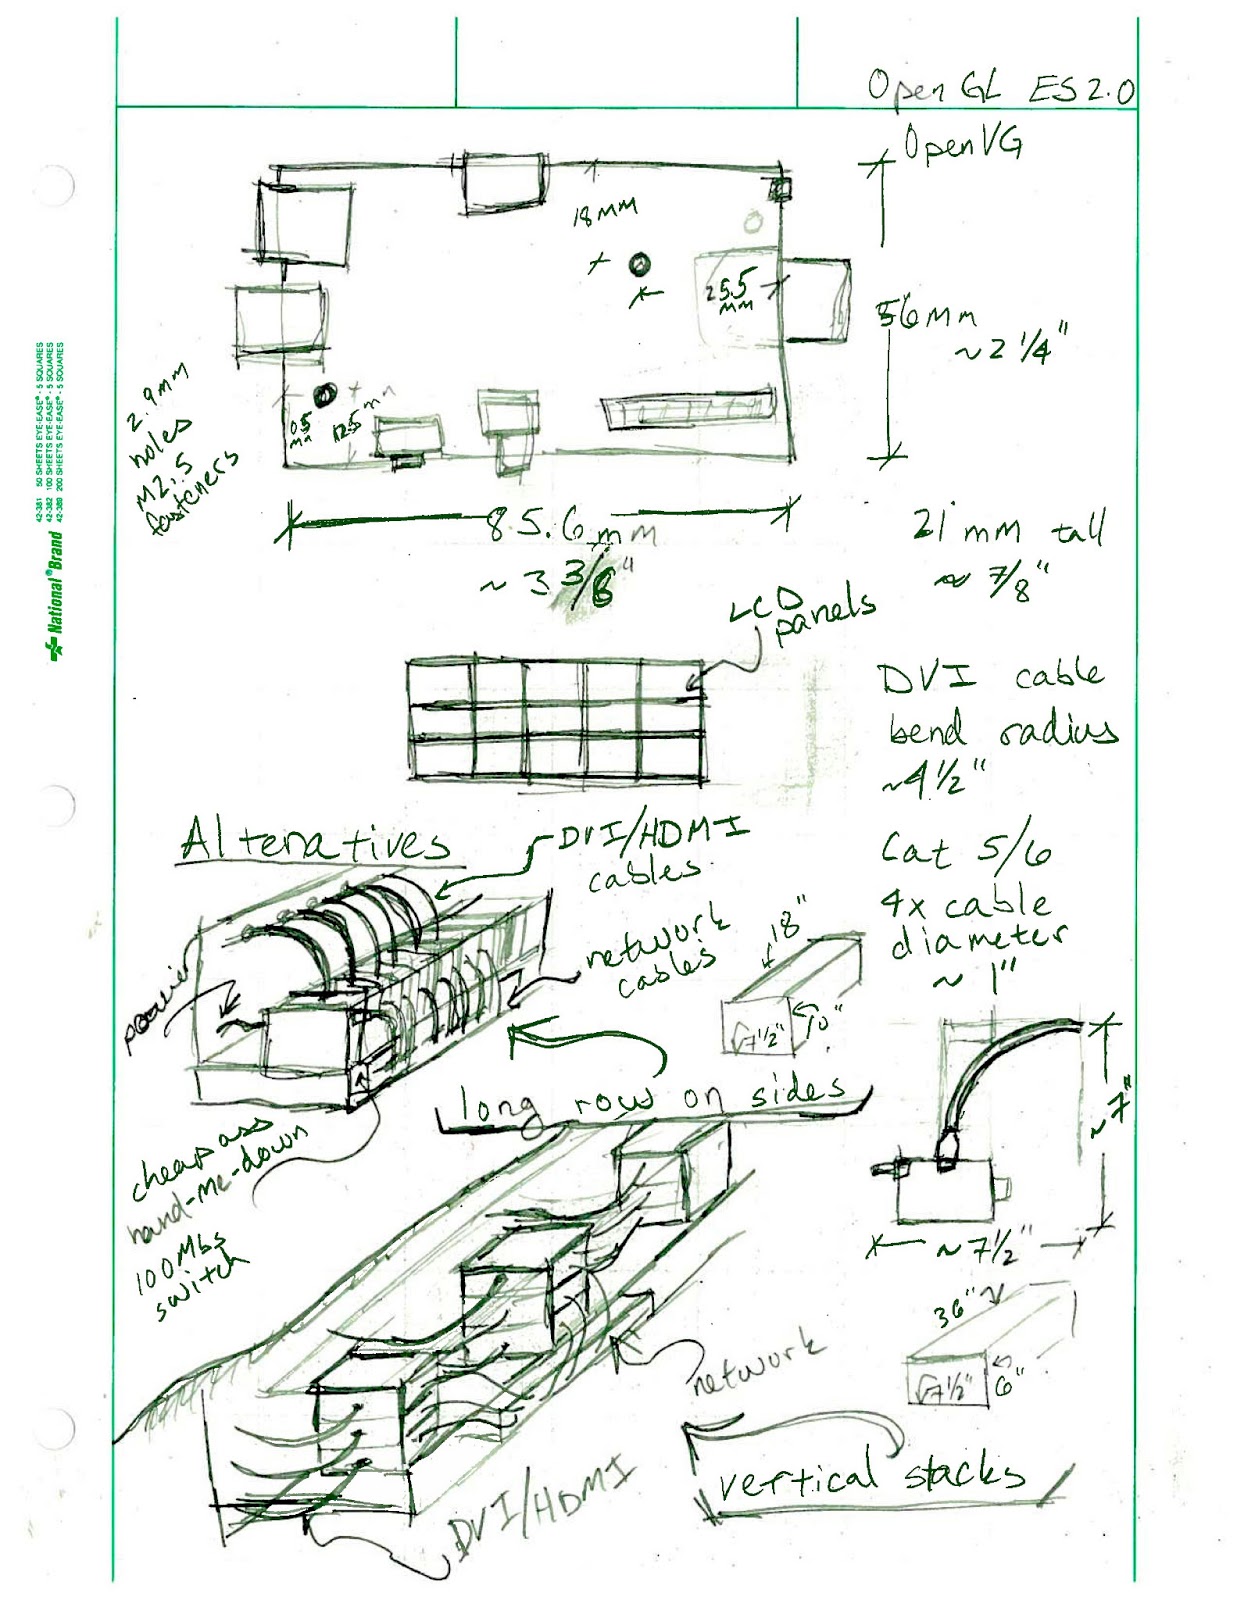 OpenGL ES2.0
OpenVG
18mm
25.5
mm
56mm
~2 1/4"
2.9mm
holes
M2.5
fasteners
12.5mm
85.6mm
~3 3/8"
21 mm tall
~ 7/8"
42-381 50 SHEETS EYE-EASE® - 5 SQUARES
42-382 100 SHEETS EYE-EASE® - 5 SQUARES
42-389 200 SHEETS EYE-EASE® - 5 SQUARES
National® Brand
LCD
panels
DVI cable
bend radius
~4 1/2"
Alternatives
DVI/HDMI
cables
network
cables
Cat 5/6
4x cable
diameter
~ 1"
18"
7 1/2"
10"
power
long row on sides
cheap ass
hand-me-down
100Mbs
switch
~7"
~7 1/2"
36"
7 1/2"
6"
network
vertical stacks
DVI/HDMI